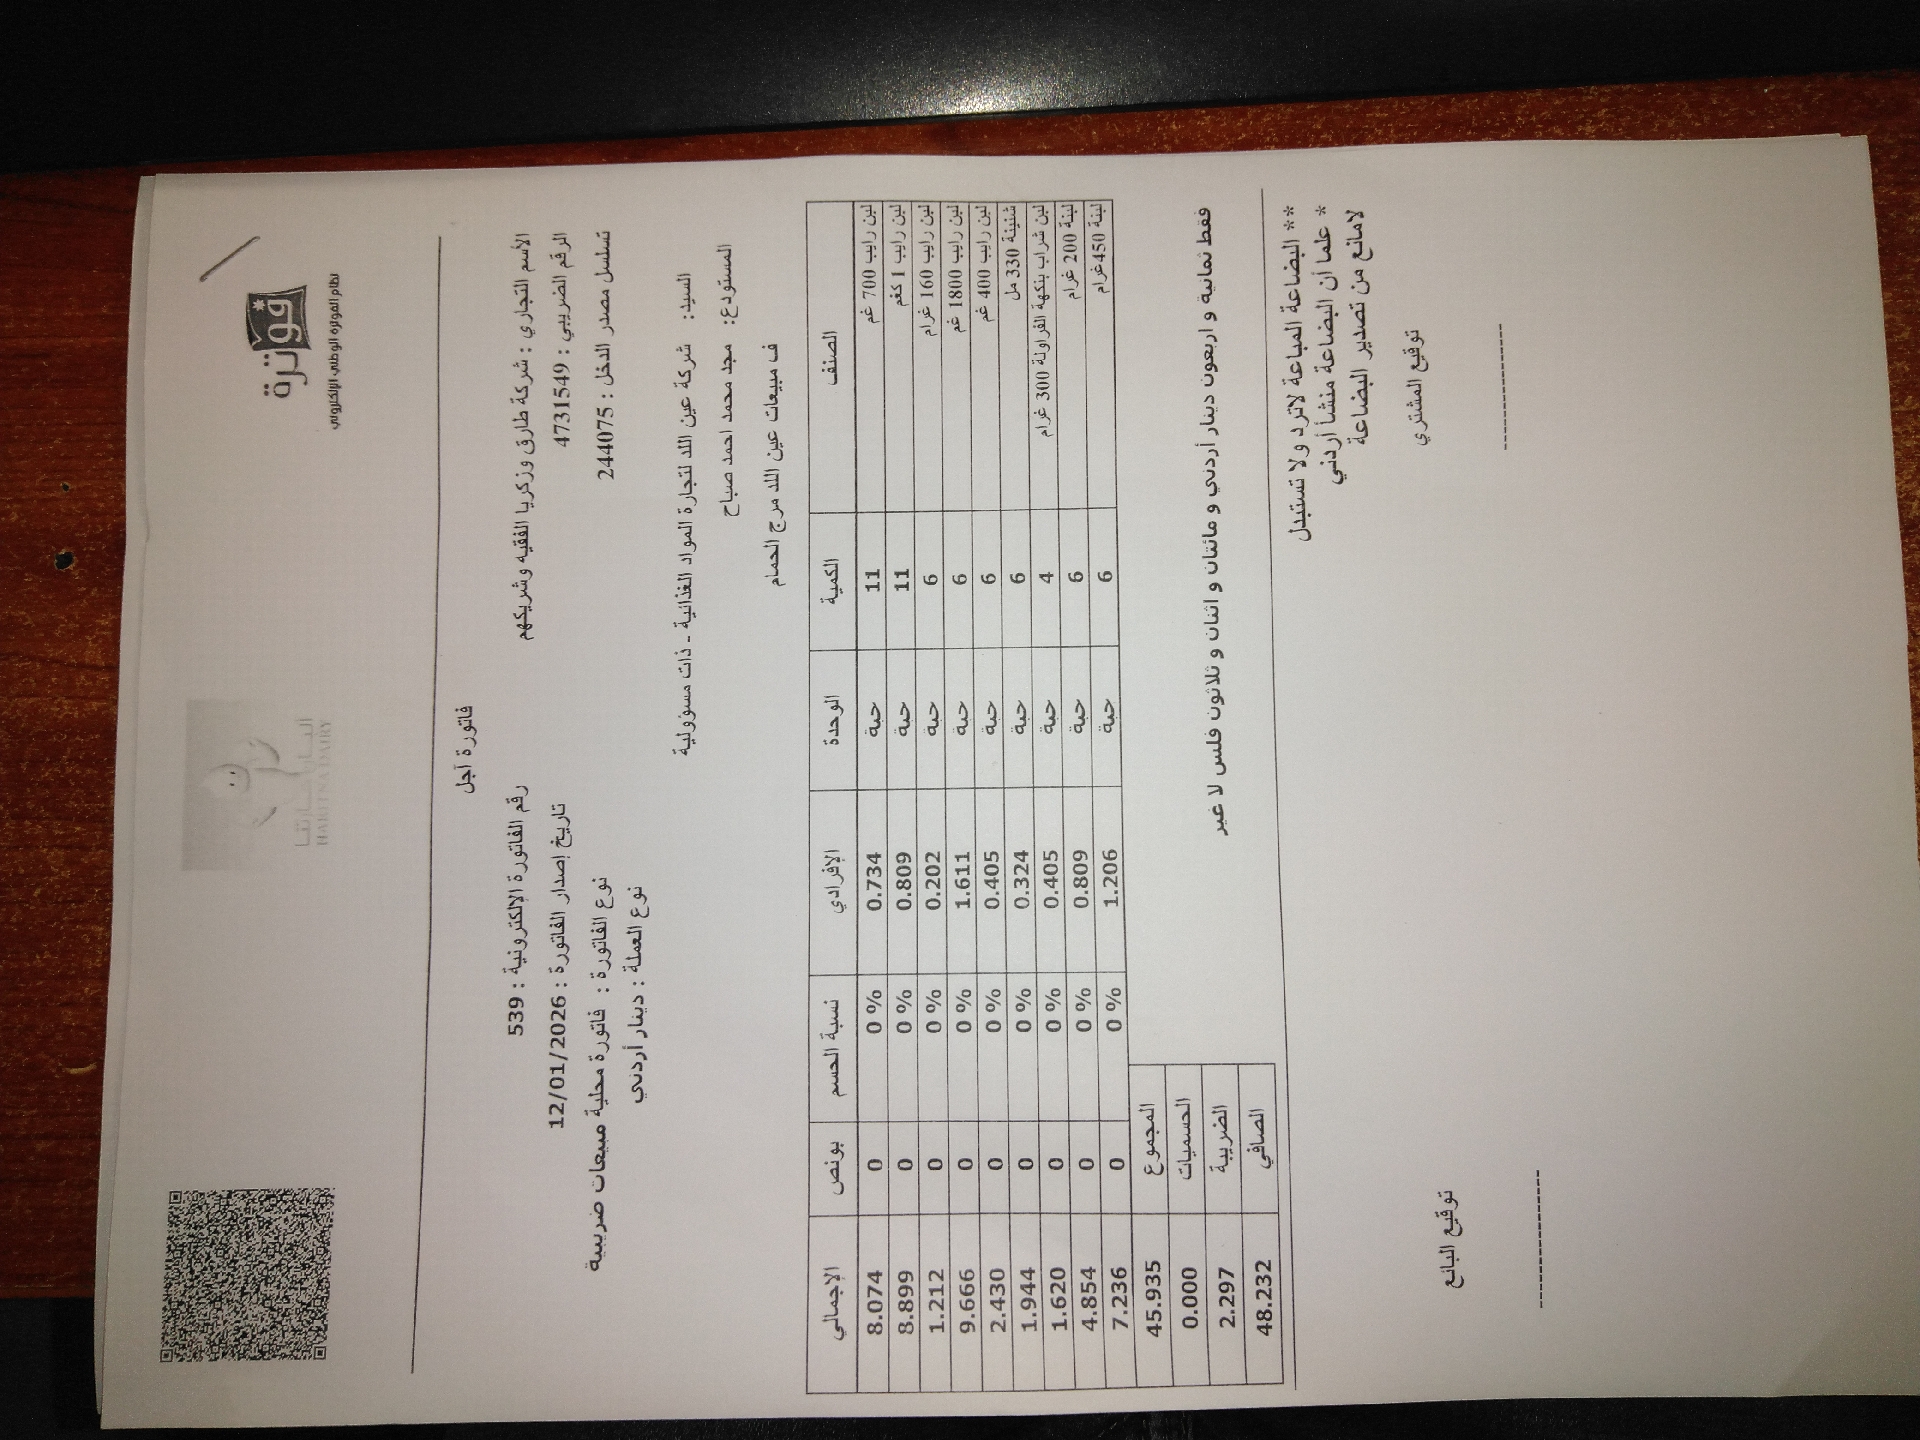 فوترة
نظام الفوترة الوطني الإلكتروني
البان حارتنا
HARITNA DAIRY
فاتورة آجل
الأسم التجاري : شركة طارق وزكريا الفقيه وشريكهم
رقم الفاتورة الإلكترونية : 539
الرقم الضريبي : 4731549
تاريخ إصدار الفاتورة : 12/01/2026
تسلسل مصدر الدخل : 244075
نوع الفاتورة : فاتورة محلية مبيعات ضريبية
نوع العملة : دينار أردني
السيد: شركة عين اللد لتجارة المواد الغذائية - ذات مسؤولية
المستودع: مجد محمد احمد صباح
ف مبيعات عين اللد مرج الحمام
الصنف الكمية الوحدة الإفرادي نسبة الحسم بونص الإجمالي
لبن رايب 700 غم 11 حبة 0.734 0 % 0 8.074
لبن رايب 1 كغم 11 حبة 0.809 0 % 0 8.899
لبن رايب 160 غرام 6 حبة 0.202 0 % 0 1.212
لبن رايب 1800 غم 6 حبة 1.611 0 % 0 9.666
لبن رايب 400 غم 6 حبة 0.405 0 % 0 2.430
شنينة 330 مل 6 حبة 0.324 0 % 0 1.944
لبن شراب بنكهة الفراولة 300 غرام 4 حبة 0.405 0 % 0 1.620
لبنة 200 غرام 6 حبة 0.809 0 % 0 4.854
لبنة 450غرام 6 حبة 1.206 0 % 0 7.236
المجموع 45.935
الحسميات 0.000
الضريبة 2.297
الصافي 48.232
فقط ثمانية و اربعون دينار أردني و مائتان و اثنان و ثلاثون فلس لا غير
** البضاعة المباعة لاترد ولا تستبدل
* علما أن البضاعة منشأ أردني
لامانع من تصدير البضاعة
توقيع المشتري
توقيع البائع